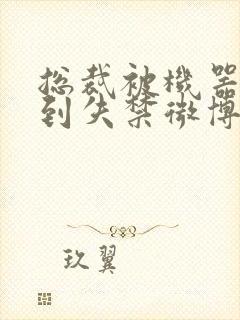 总裁被機器
到失禁微博
玖翼